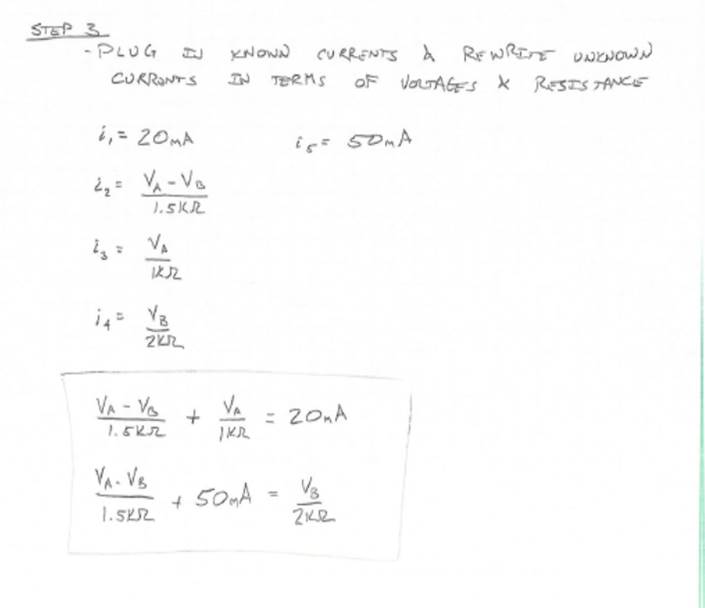 STEP 3
- PLUG IN KNOWN CURRENTS & REWRITE UNKNOWN
CURRENTS IN TERMS OF VOLTAGES & RESISTANCE
i₁ = 20mA i₅ = 50mA
i₂ = (V_A - V_B) / 1.5KΩ
i₃ = V_A / 1KΩ
i₄ = V_B / 2KΩ
(V_A - V_B) / 1.5KΩ + V_A / 1KΩ = 20mA
(V_A - V_B) / 1.5KΩ + 50mA = V_B / 2KΩ